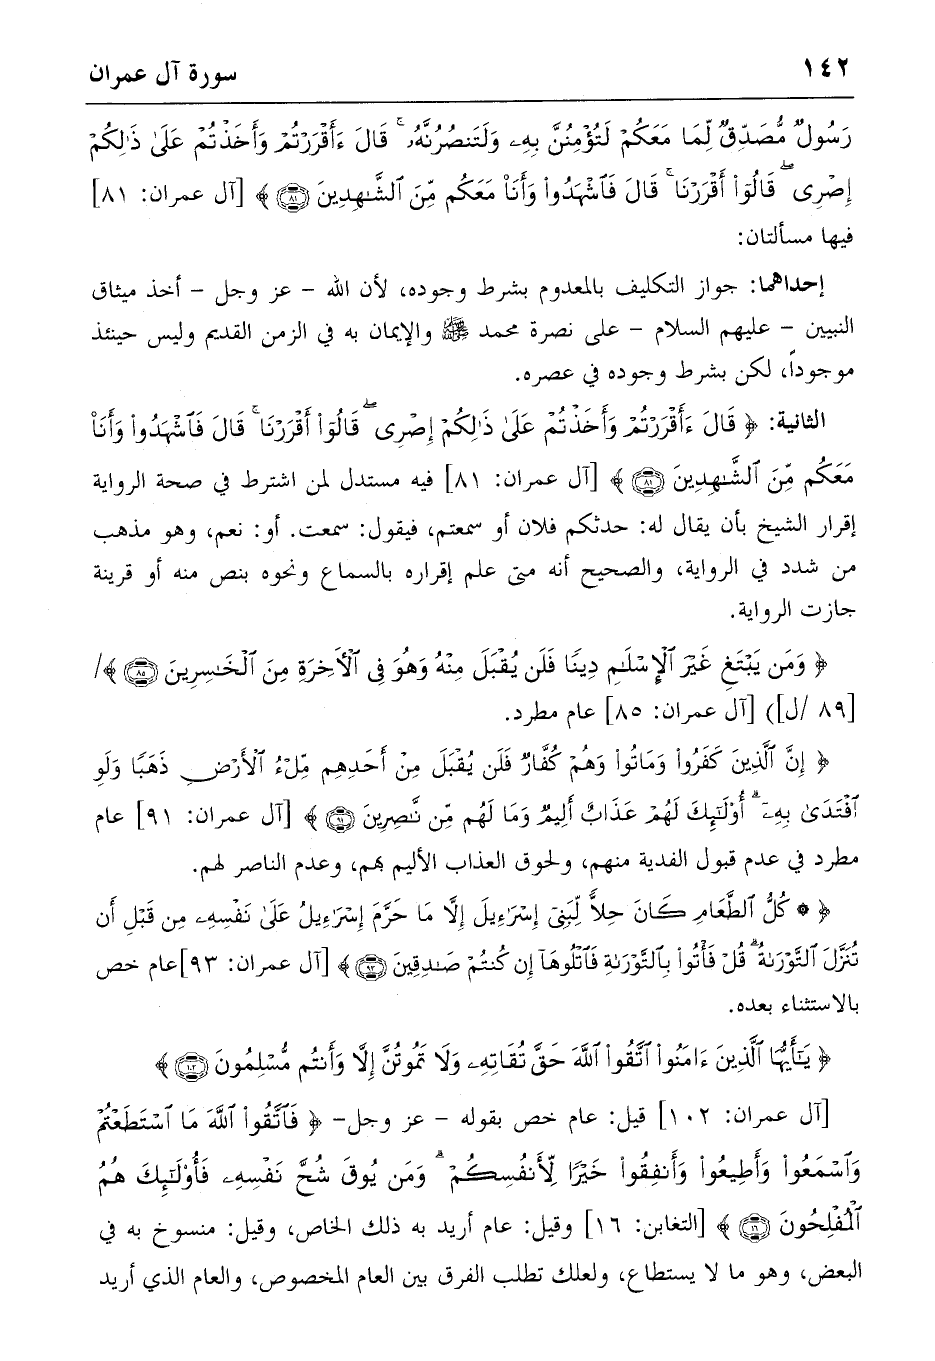 ١٤٢ سورة آل عمران
رَسُولٌ مُّصَدِّقٌ لِّمَا مَعَكُمْ لَتُؤْمِنُنَّ بِهِۦ وَلَتَنصُرُنَّهُۥ ۚ قَالَ ءَأَقْرَرْتُمْ وَأَخَذْتُمْ عَلَىٰ ذَٰلِكُمْ
إِصْرِى ۖ قَالُوٓا۟ أَقْرَرْنَا ۚ قَالَ فَٱشْهَدُوا۟ وَأَنَا۠ مَعَكُم مِّنَ ٱلشَّٰهِدِينَ ﴿٨١﴾ ﴾ [آل عمران: ٨١]
فيها مسألتان:
إحداهما: جواز التكليف بالمعدوم بشرط وجوده، لأن الله - عز وجل - أخذ ميثاق
النبيين - عليهم السلام - على نصرة محمد ﷺ والإيمان به في الزمن القديم وليس حينئذ
موجوداً، لكن بشرط وجوده في عصره.
الثانية: ﴿ قَالَ ءَأَقْرَرْتُمْ وَأَخَذْتُمْ عَلَىٰ ذَٰلِكُمْ إِصْرِى ۖ قَالُوٓا۟ أَقْرَرْنَا ۚ قَالَ فَٱشْهَدُوا۟ وَأَنَا۠
مَعَكُم مِّنَ ٱلشَّٰهِدِينَ ﴿٨١﴾ ﴾ [آل عمران: ٨١] فيه مستدل لمن اشترط في صحة الرواية
إقرار الشيخ بأن يقال له: حدثكم فلان أو سمعتم، فيقول: سمعت. أو: نعم، وهو مذهب
من شدد في الرواية، والصحيح أنه متى علم إقراره بالسماع ونحوه بنص منه أو قرينة
جازت الرواية.
﴿ وَمَن يَبْتَغِ غَيْرَ ٱلْإِسْلَٰمِ دِينًا فَلَن يُقْبَلَ مِنْهُ وَهُوَ فِى ٱلْأَخِرَةِ مِنَ ٱلْخَٰسِرِينَ ﴿٨٥﴾ ﴾/
[٨٩ /ل]) [آل عمران: ٨٥] عام مطرد.
﴿ إِنَّ ٱلَّذِينَ كَفَرُوا۟ وَمَاتُوا۟ وَهُمْ كُفَّارٌ فَلَن يُقْبَلَ مِنْ أَحَدِهِم مِّلْءُ ٱلْأَرْضِ ذَهَبًا وَلَوِ
ٱفْتَدَىٰ بِهِۦٓ ۗ أُو۟لَٰٓئِكَ لَهُمْ عَذَابٌ أَلِيمٌ وَمَا لَهُم مِّن نَّٰصِرِينَ ﴿٩١﴾ ﴾ [آل عمران: ٩١] عام
مطرد في عدم قبول الفدية منهم، ولحوق العذاب الأليم بهم، وعدم الناصر لهم.
﴿ * كُلُّ ٱلطَّعَامِ كَانَ حِلًّا لِّبَنِىٓ إِسْرَٰٓءِيلَ إِلَّا مَا حَرَّمَ إِسْرَٰٓءِيلُ عَلَىٰ نَفْسِهِۦ مِن قَبْلِ أَن
تُنَزَّلَ ٱلتَّوْرَىٰةُ ۗ قُلْ فَأْتُوا۟ بِٱلتَّوْرَىٰةِ فَٱتْلُوهَآ إِن كُنتُمْ صَٰدِقِينَ ﴿٩٣﴾ ﴾ [آل عمران: ٩٣]عام خص
بالاستثناء بعده.
﴿ يَٰٓأَيُّهَا ٱلَّذِينَ ءَامَنُوا۟ ٱتَّقُوا۟ ٱللَّهَ حَقَّ تُقَاتِهِۦ وَلَا تَمُوتُنَّ إِلَّا وَأَنتُم مُّسْلِمُونَ ﴿١٠٢﴾ ﴾
[آل عمران: ١٠٢] قيل: عام خص بقوله - عز وجل- ﴿ فَٱتَّقُوا۟ ٱللَّهَ مَا ٱسْتَطَعْتُمْ
وَٱسْمَعُوا۟ وَأَطِيعُوا۟ وَأَنفِقُوا۟ خَيْرًا لِّأَنفُسِكُمْ ۗ وَمَن يُوقَ شُحَّ نَفْسِهِۦ فَأُو۟لَٰٓئِكَ هُمُ
ٱلْمُفْلِحُونَ ﴿١٦﴾ ﴾ [التغابن: ١٦] وقيل: عام أريد به ذلك الخاص، وقيل: منسوخ به في
البعض، وهو ما لا يستطاع، ولعلك تطلب الفرق بين العام المخصوص، والعام الذي أريد